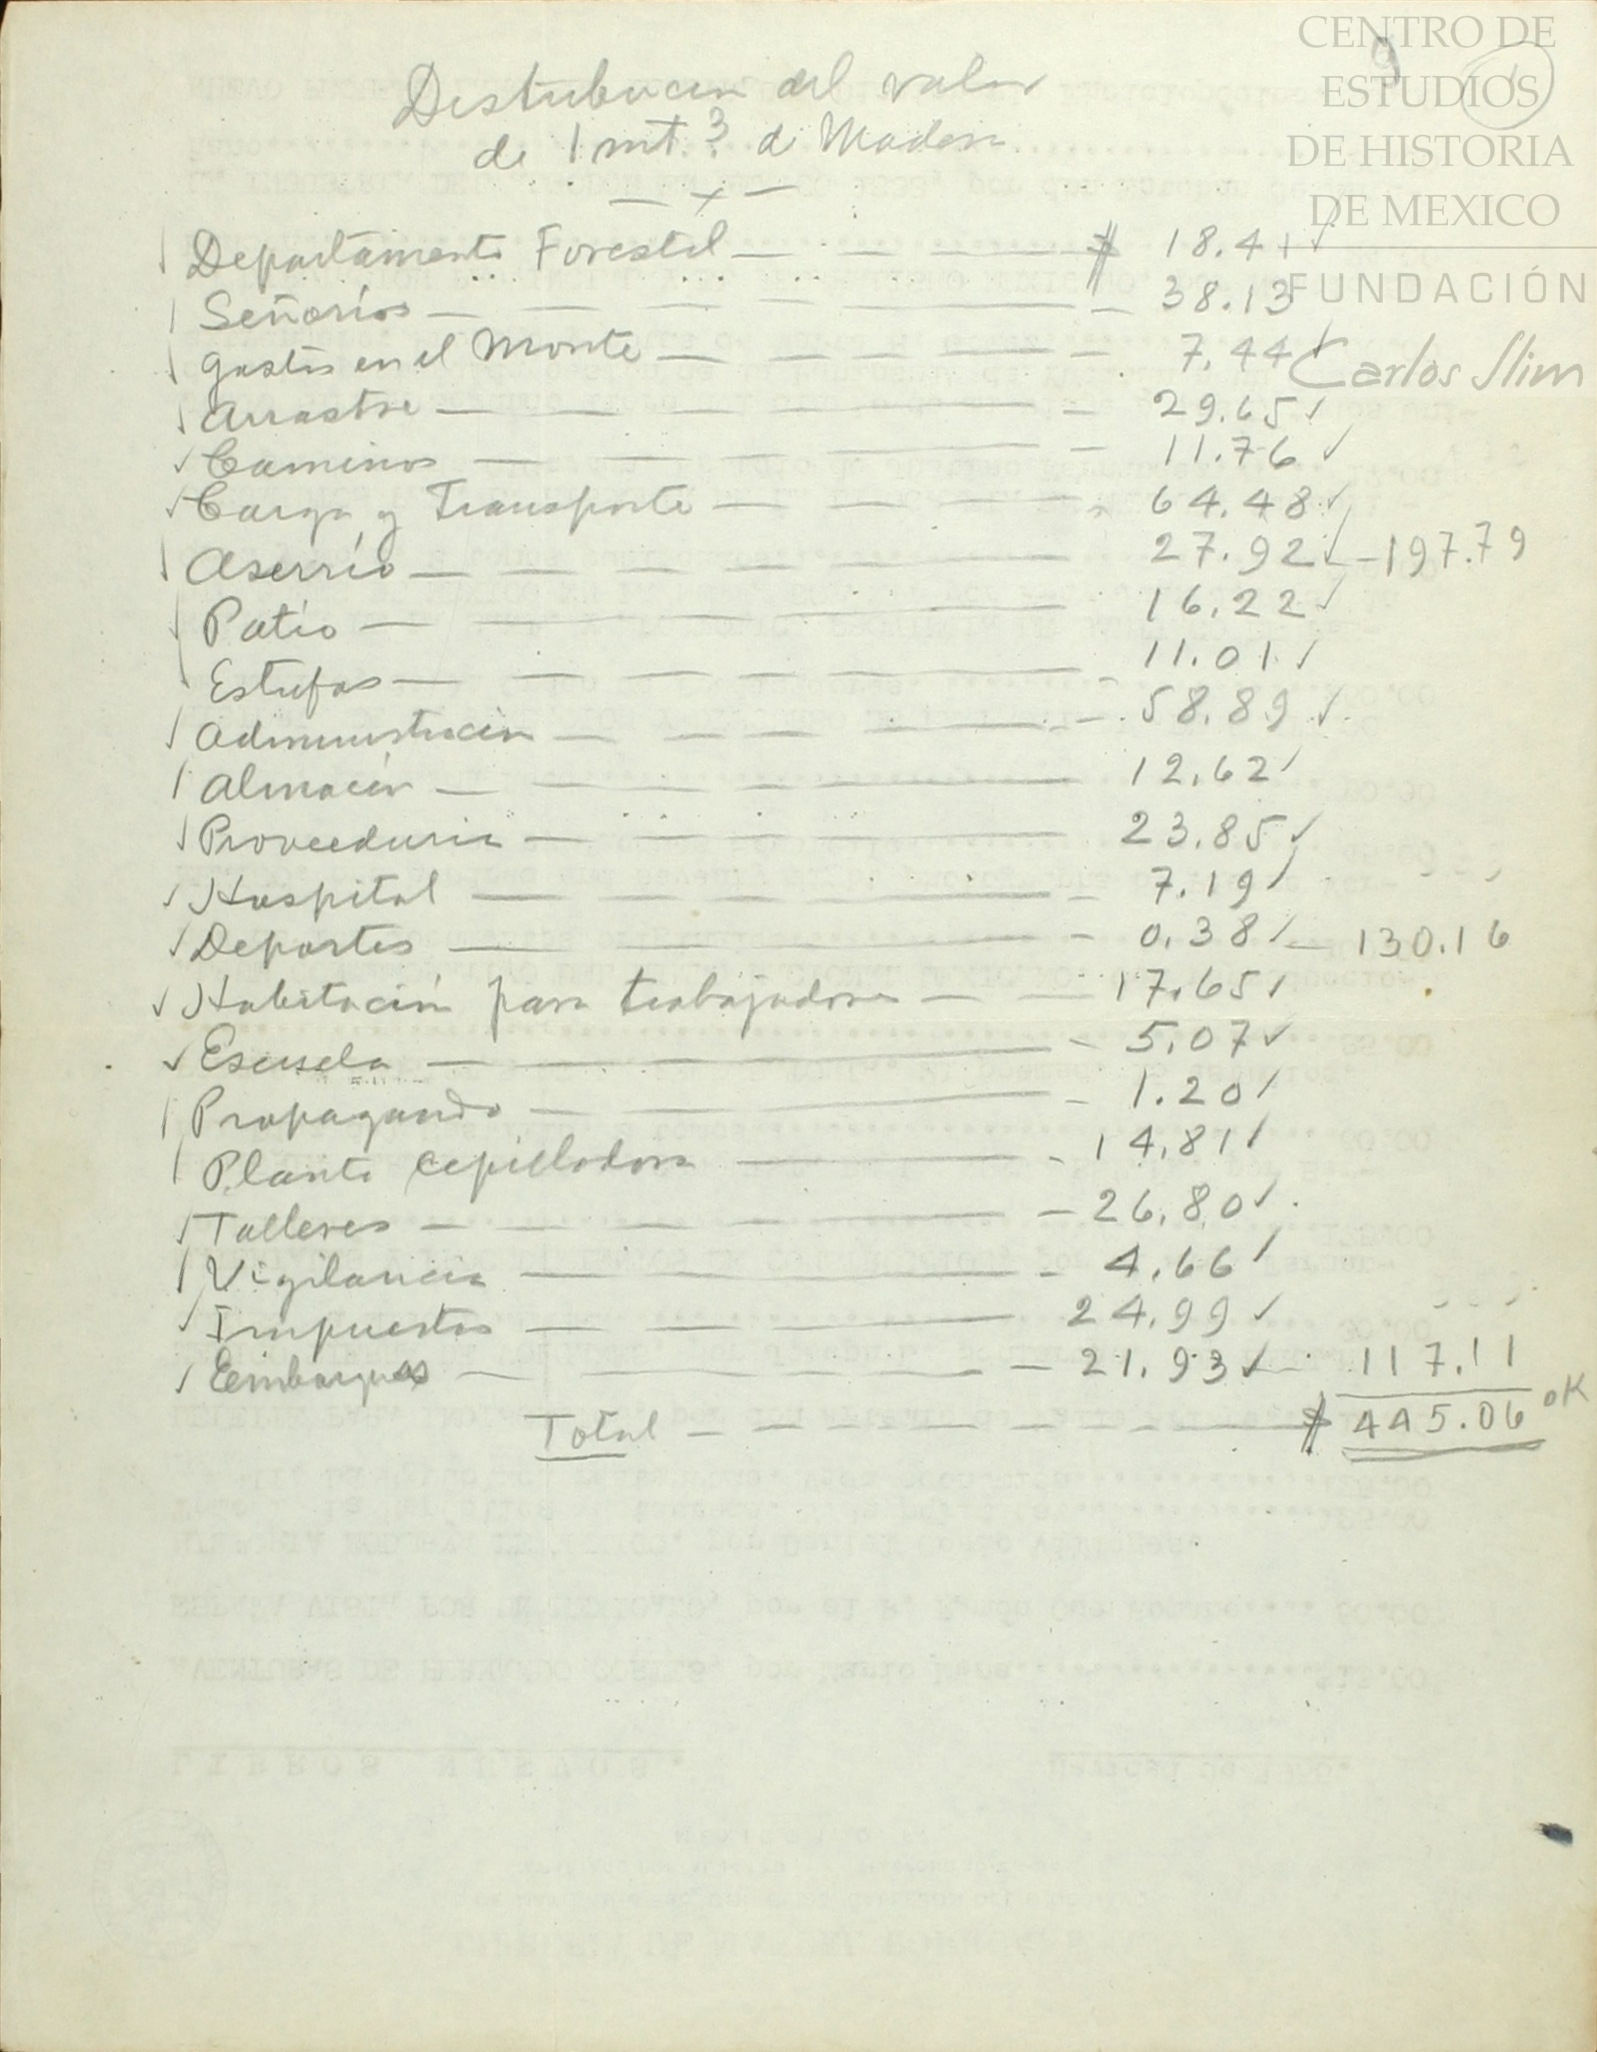 CENTRO DE
ESTUDIOS
DE HISTORIA
DE MEXICO
FUNDACIÓN
Carlos Slim
9
1
Distribucion del valor
de 1 mt.3 de Madera
— x —
Departamento Forestal — $ 18.41 ✓
Señorios — 38.13
gastos en el Monte — 7.44 ✓
Arrastre — 29.65 ✓
Caminos — 11.76 ✓
Carga y Transporte — 64.48 ✓
Aserrío — 27.92 ✓ — 197.79
Patio — 16.22 ✓
Estufas — 11.01 ✓
Administración — 58.89 ✓
Almacén — 12.62 ✓
Proveeduria — 23.85 ✓
Hospital — 7.19 ✓
Deportes — 0.38 ✓ — 130.16
Habitación para trabajadores — 17.65 ✓
Escuela — 5.07 ✓
Propaganda — 1.20 ✓
Planta cepilladora — 14.81 ✓
Talleres — 26.80 ✓
Vigilancia — 4.66 ✓
Impuestos — 24.99 ✓
Embarques — 21.93 ✓ — 117.11
Total — $ 445.06 OK